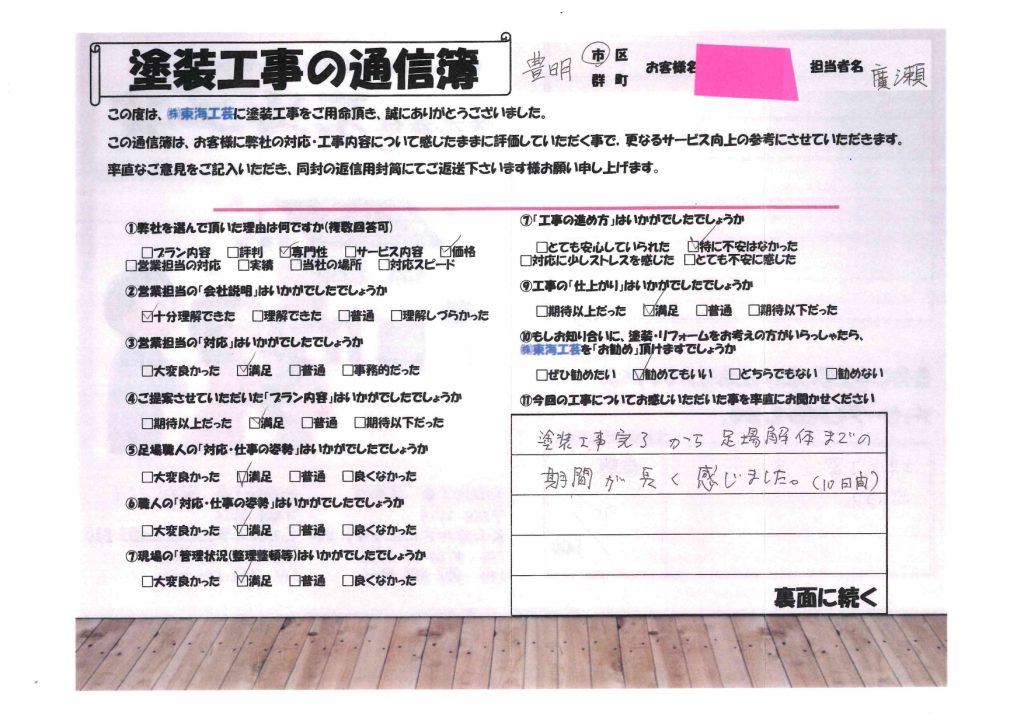 塗装工事の通信簿
豊明 市 区
群 町
お客様名
担当者名 廣瀬
この度は、㈱東海工芸に塗装工事をご用命頂き、誠にありがとうございました。
この通信簿は、お客様に弊社の対応・工事内容について感じたままに評価していただく事で、更なるサービス向上の参考にさせていただきます。
率直なご意見をご記入いただき、同封の返信用封筒にてご返送下さいます様お願い申し上げます。
①弊社を選んで頂いた理由は何ですか(複数回答可)
□プラン内容 □評判 ☑専門性 □サービス内容 ☑価格
□営業担当の対応 □実績 □当社の場所 □対応スピード
②営業担当の「会社説明」はいかがでしたでしょうか
☑十分理解できた □理解できた □普通 □理解しづらかった
③営業担当の「対応」はいかがでしたでしょうか
□大変良かった ☑満足 □普通 □事務的だった
④ご提案させていただいた「プラン内容」はいかがでしたでしょうか
□期待以上だった ☑満足 □普通 □期待以下だった
⑤足場職人の「対応・仕事の姿勢」はいかがでしたでしょうか
□大変良かった ☑満足 □普通 □良くなかった
⑥職人の「対応・仕事の姿勢」はいかがでしたでしょうか
□大変良かった ☑満足 □普通 □良くなかった
⑦現場の「管理状況(整理整頓等)はいかがでしたでしょうか
□大変良かった ☑満足 □普通 □良くなかった
⑦「工事の進め方」はいかがでしたでしょうか
□とても安心していられた ☑特に不安はなかった
□対応に少しストレスを感じた □とても不安に感じた
⑨工事の「仕上がり」はいかがでしたでしょうか
□期待以上だった ☑満足 □普通 □期待以下だった
⑩もしお知り合いに、塗装・リフォームをお考えの方がいらっしゃたら、
㈱東海工芸を「お勧め」頂けますでしょうか
□ぜひ勧めたい ☑勧めてもいい □どちらでもない □勧めない
⑪今回の工事についてお感じいただいた事を率直にお聞かせください
塗装工事完了から足場解体までの
期間が長く感じました。(10日間)
裏面に続く